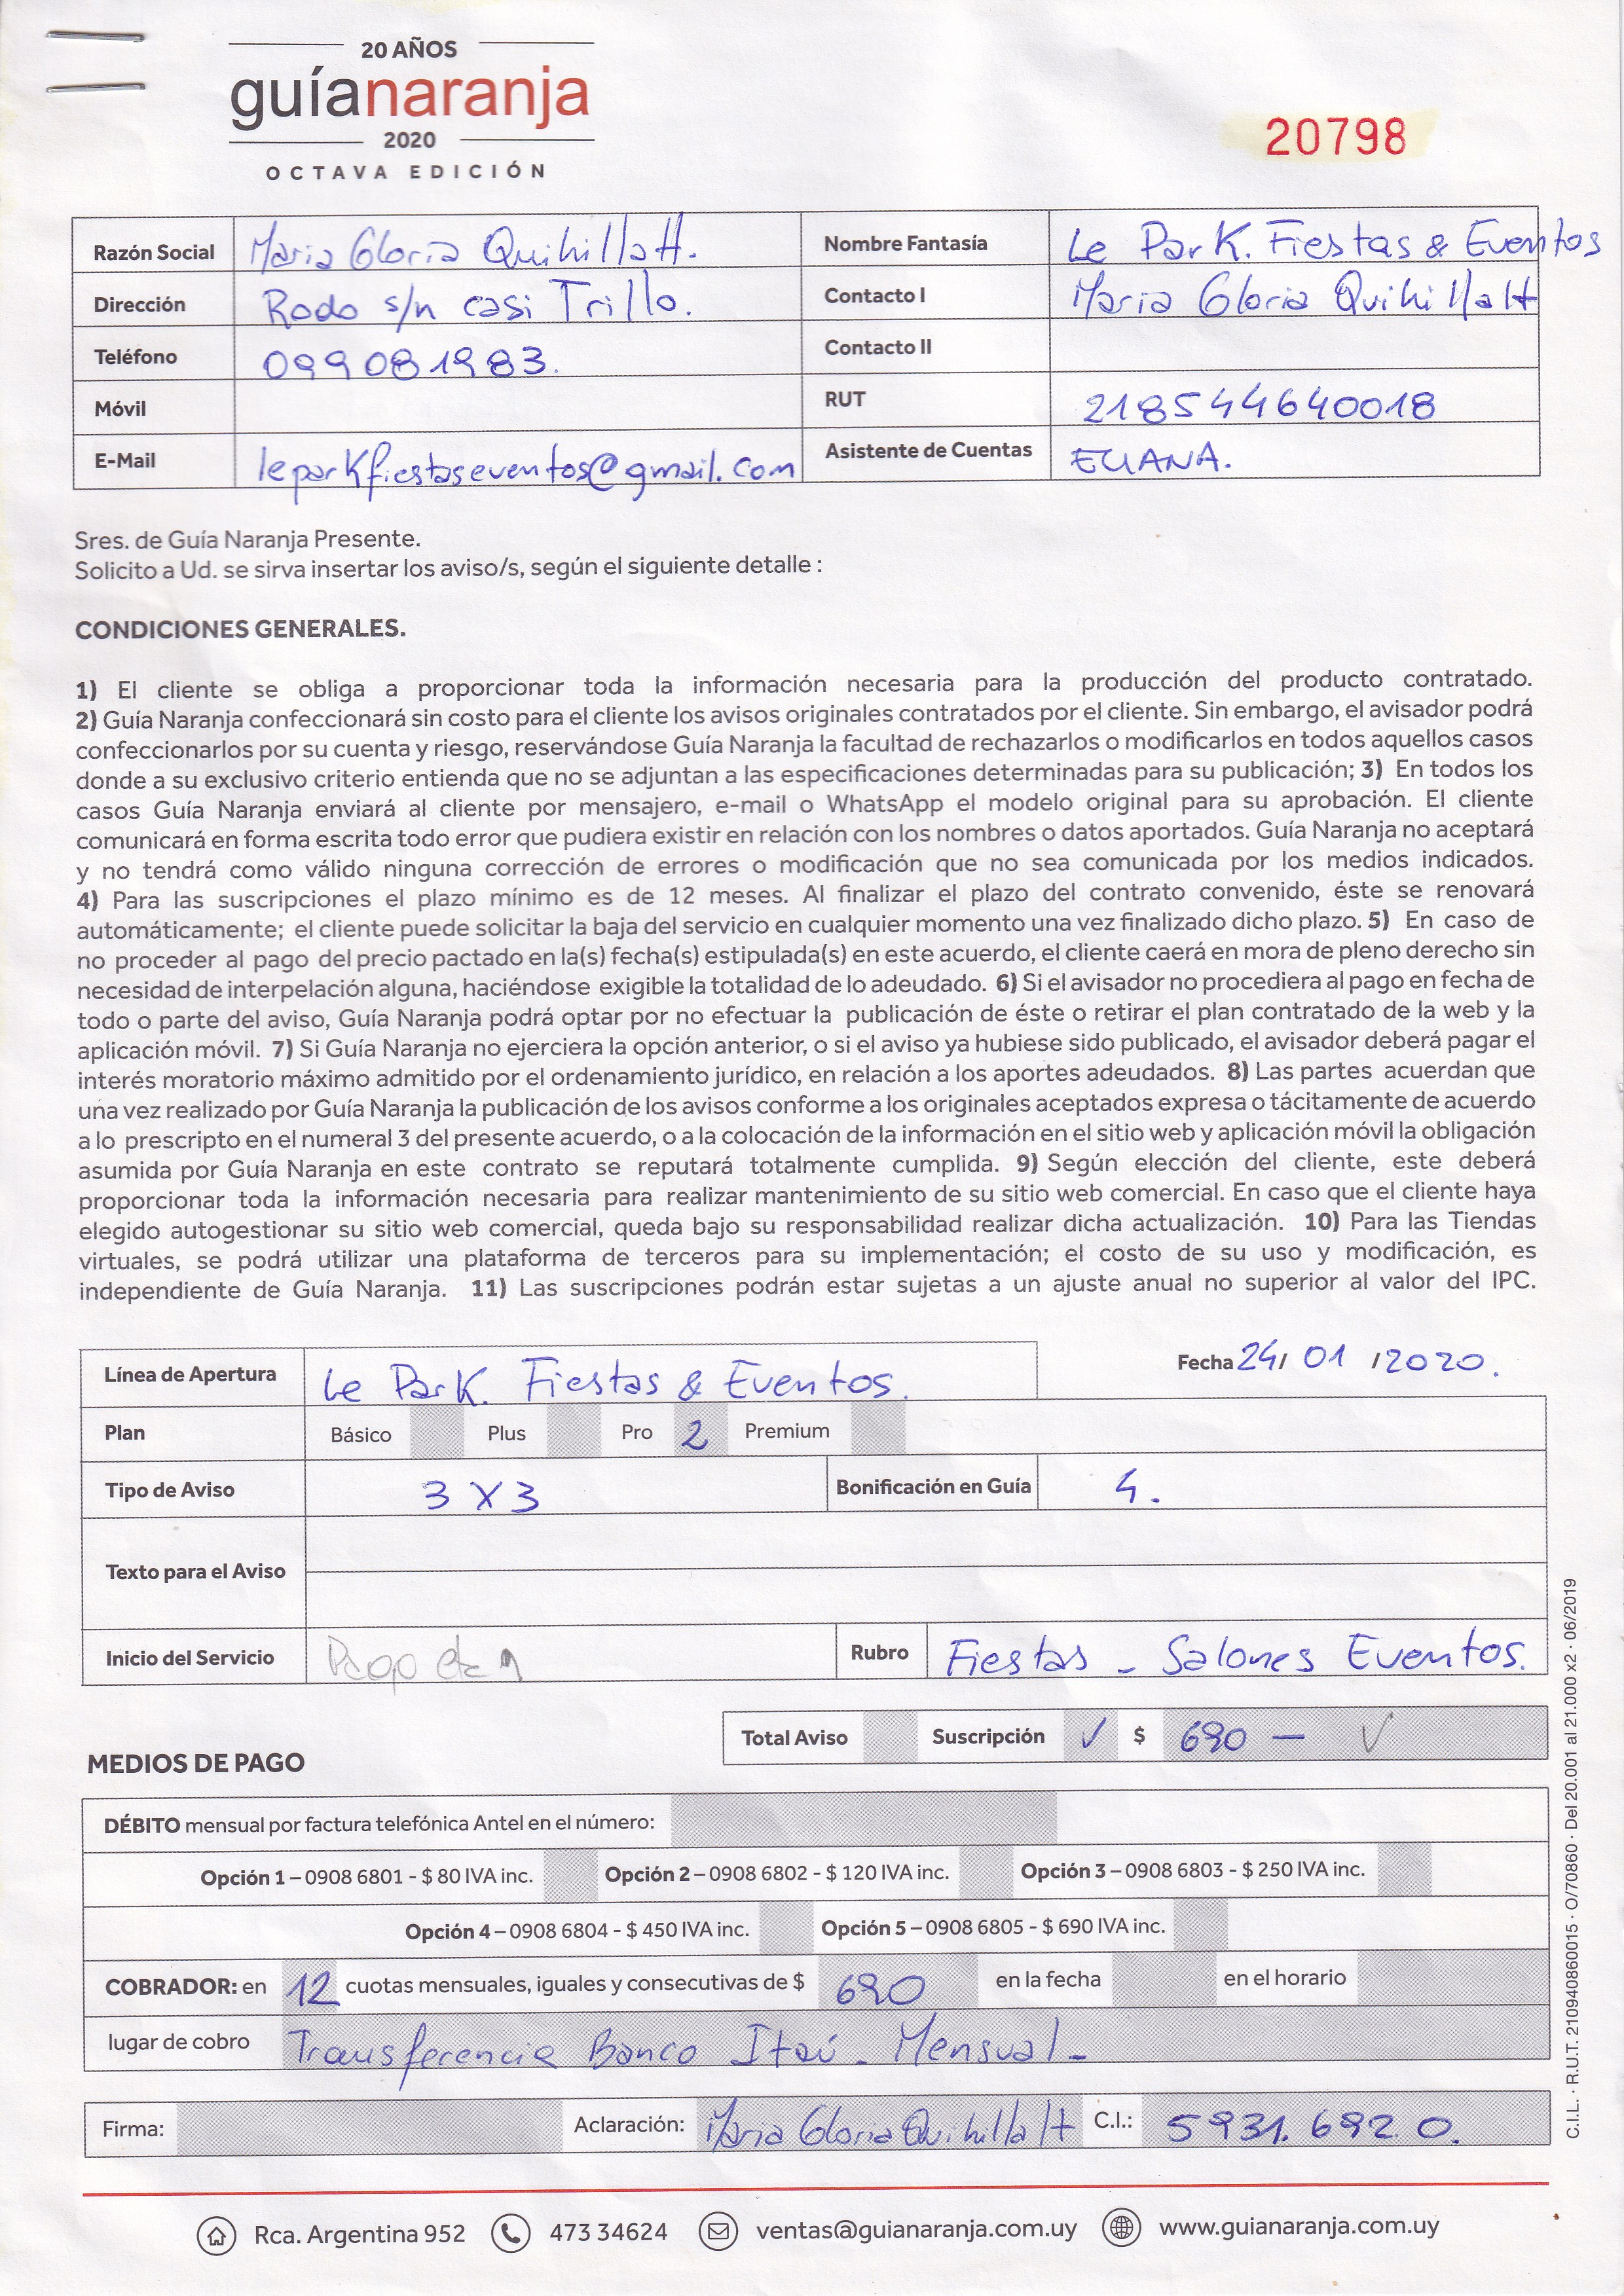 20 AÑOS
guíanaranja
2020
OCTAVA EDICIÓN
20798
Razón Social Maria Gloria Quihillalt. Nombre Fantasía Le Park. Fiestas & Eventos
Dirección Rodo s/n casi Trillo. Contacto I Maria Gloria Quihillalt
Teléfono 099081983. Contacto II
Móvil RUT 218544640018
E-Mail leparkfiestaseventos@gmail.com Asistente de Cuentas ELIANA.
Sres. de Guía Naranja Presente.
Solicito a Ud. se sirva insertar los aviso/s, según el siguiente detalle :
CONDICIONES GENERALES.
1) El cliente se obliga a proporcionar toda la información necesaria para la producción del producto contratado.
2) Guía Naranja confeccionará sin costo para el cliente los avisos originales contratados por el cliente. Sin embargo, el avisador podrá
confeccionarlos por su cuenta y riesgo, reservándose Guía Naranja la facultad de rechazarlos o modificarlos en todos aquellos casos
donde a su exclusivo criterio entienda que no se adjuntan a las especificaciones determinadas para su publicación; 3) En todos los
casos Guía Naranja enviará al cliente por mensajero, e-mail o WhatsApp el modelo original para su aprobación. El cliente
comunicará en forma escrita todo error que pudiera existir en relación con los nombres o datos aportados. Guía Naranja no aceptará
y no tendrá como válido ninguna corrección de errores o modificación que no sea comunicada por los medios indicados.
4) Para las suscripciones el plazo mínimo es de 12 meses. Al finalizar el plazo del contrato convenido, éste se renovará
automáticamente; el cliente puede solicitar la baja del servicio en cualquier momento una vez finalizado dicho plazo. 5) En caso de
no proceder al pago del precio pactado en la(s) fecha(s) estipulada(s) en este acuerdo, el cliente caerá en mora de pleno derecho sin
necesidad de interpelación alguna, haciéndose exigible la totalidad de lo adeudado. 6) Si el avisador no procediera al pago en fecha de
todo o parte del aviso, Guía Naranja podrá optar por no efectuar la publicación de éste o retirar el plan contratado de la web y la
aplicación móvil. 7) Si Guía Naranja no ejerciera la opción anterior, o si el aviso ya hubiese sido publicado, el avisador deberá pagar el
interés moratorio máximo admitido por el ordenamiento jurídico, en relación a los aportes adeudados. 8) Las partes acuerdan que
una vez realizado por Guía Naranja la publicación de los avisos conforme a los originales aceptados expresa o tácitamente de acuerdo
a lo prescripto en el numeral 3 del presente acuerdo, o a la colocación de la información en el sitio web y aplicación móvil la obligación
asumida por Guía Naranja en este contrato se reputará totalmente cumplida. 9) Según elección del cliente, este deberá
proporcionar toda la información necesaria para realizar mantenimiento de su sitio web comercial. En caso que el cliente haya
elegido autogestionar su sitio web comercial, queda bajo su responsabilidad realizar dicha actualización. 10) Para las Tiendas
virtuales, se podrá utilizar una plataforma de terceros para su implementación; el costo de su uso y modificación, es
independiente de Guía Naranja. 11) Las suscripciones podrán estar sujetas a un ajuste anual no superior al valor del IPC.
Línea de Apertura Le Park. Fiestas & Eventos. Fecha 24/ 01 /2020.
Plan Básico Plus Pro 2 Premium
Tipo de Aviso 3 X 3 Bonificación en Guía 4.
Texto para el Aviso
Inicio del Servicio Rubro Fiestas - Salones Eventos.
Total Aviso Suscripción ✓ $ 690 — ✓
MEDIOS DE PAGO
DÉBITO mensual por factura telefónica Antel en el número:
Opción 1 – 0908 6801 - $ 80 IVA inc. Opción 2 – 0908 6802 - $ 120 IVA inc. Opción 3 – 0908 6803 - $ 250 IVA inc.
Opción 4 – 0908 6804 - $ 450 IVA inc. Opción 5 – 0908 6805 - $ 690 IVA inc.
COBRADOR: en 12 cuotas mensuales, iguales y consecutivas de $ 690 en la fecha en el horario
lugar de cobro Transferencia Banco Itaú - Mensual -
Firma: Aclaración: Maria Gloria Quihillalt C.I.: 5931.692.0.
Rca. Argentina 952 473 34624 ventas@guianaranja.com.uy www.guianaranja.com.uy
C.I.L. · R.U.T. 210940860015 · O/70860 · Del 20.001 al 21.000 x2 · 06/2019